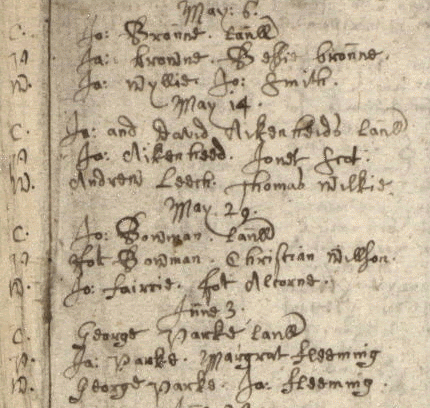 May: 6.
C. Jo: Broune. Lanll
P Ja: broune. Bessie broune.
W. Jo: Wyllie. Jo: Smith.
May 14.
C. Ja: and David Aikenheids Lanll
P Ja: Aikenheed. Jonet Scot.
W. Andrew Leech. Thomas Wilkie.
May. 29.
C. Jo: Bowman. Lanll
P Bowman. Christian Willson.
W. Jo: fairrie.
June 3.
C. George Parke Lanll
P. Ja: Parke. Margrat fleeming
W. George Parke. Ja: fleeming.